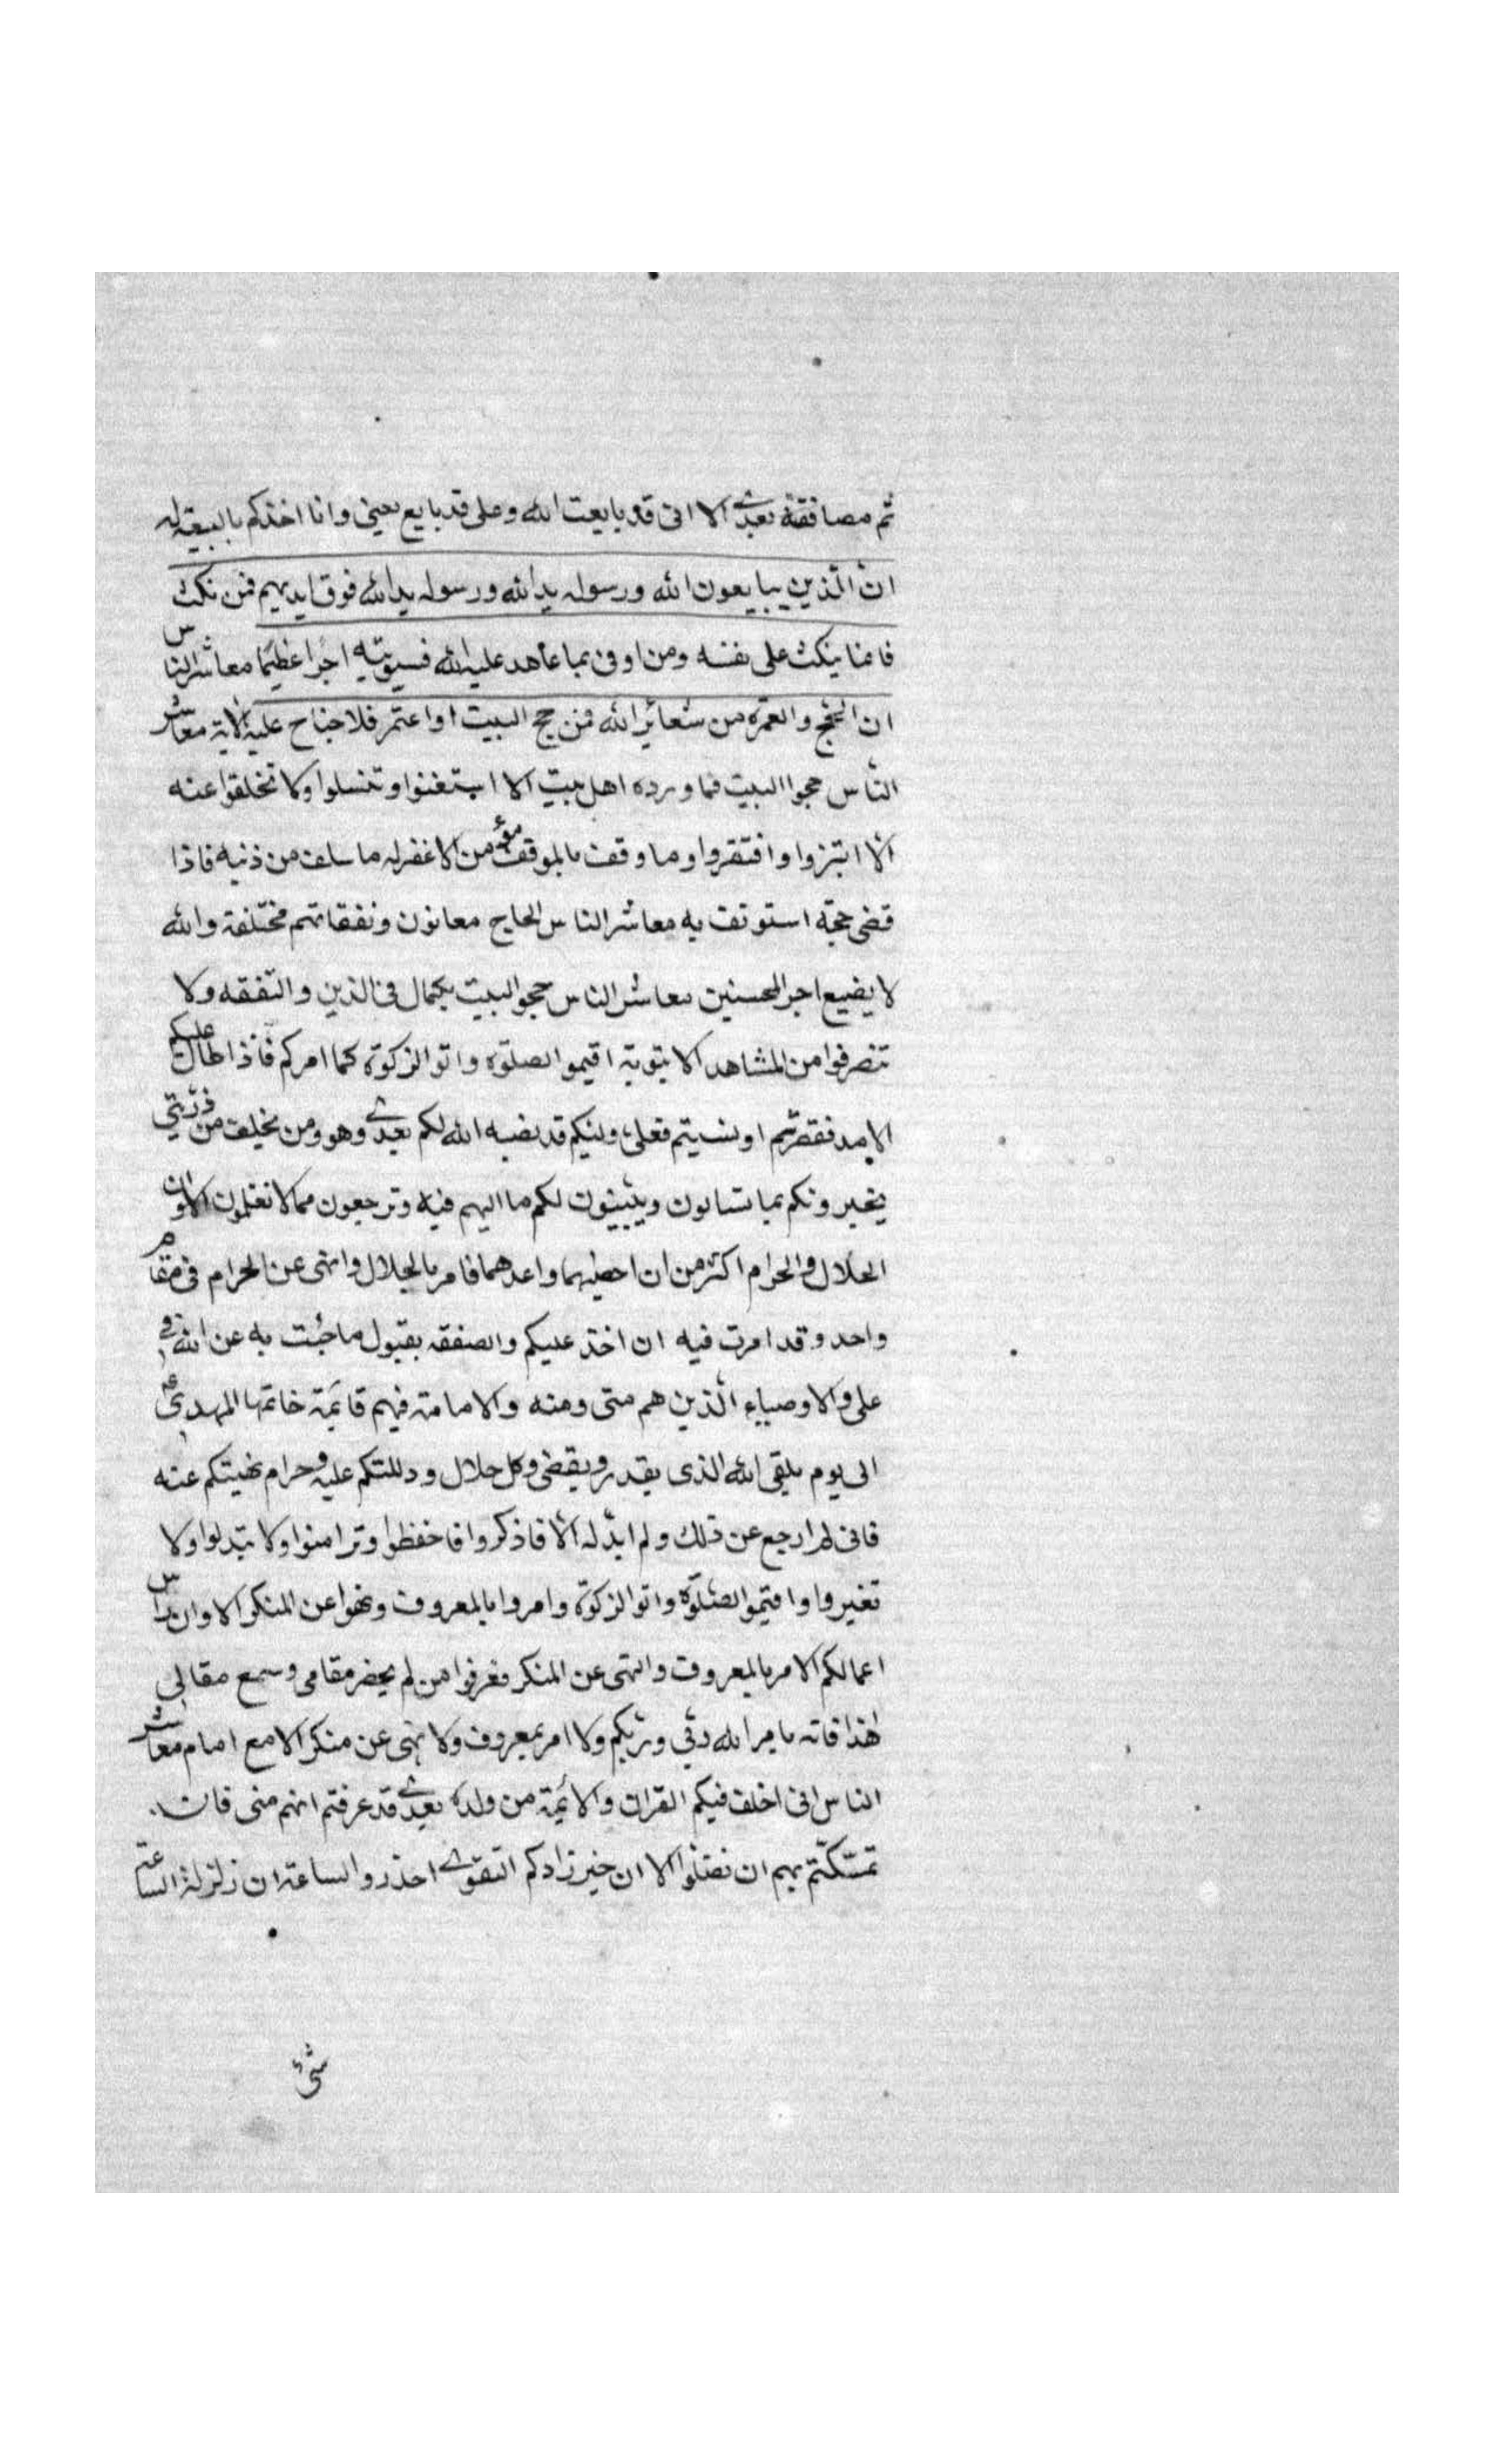 ثم مصافقة بعدي الا انى قد بايعت الله وعلى قد بايع يعنى وانا اخذكم بالبيعة له
ان الّذين يبايعون الله ورسوله يد الله ورسوله يد الله فوق ايديهم فمن نكث
فانما ينكث على نفسه ومن اوفى بما عاهد عليه الله فسيؤتيه اجرا عظيمًا معاشر الناس
ان الحج والعمرة من شعائر الله فمن حج البيت او اعتمر فلا جناح عليه الاية معاشر
النّاس حجوا البيت فما ورده اهل بيت الا استغنوا وتنسلوا ولا تخلفوا عنه
الّا ابتزوا وافتقروا وما وقف بالموقف مؤمن الا غفر له ما سلف من ذنبه فاذا
قضى حجته استونف به معاشر الناس الحاج معانون ونفقاتهم مختلفة والله
لا يضيع اجر المحسنين معاشر الناس حجو البيت بكمال فى الدين والتفقه ولا
تنصرفوا من المشاهد الا بتوبة اقيمو الصلوة واتو الزكوة كما امركم فاذا طال عليكم
الامد فقصرتم او نسيتم فعلى وليكم قد نصبه الله لكم بعدي وهو ومن يخلف من ذرّيتي
يخبرونكم بما تسالون ويبينون لكم ما اليهم فيه وترجعون مما لا تعلمون الا وان
الحلال والحرام اكثر من ان احصيهما واعدهما فامر بالحلال وانهى عن الحرام فى مقام
واحد وقد امرت فيه ان اخذ عليكم والصفقه بقبول ما جئت به عن الله فى
على والاوصياء الّذين هم منى ومنه والامامة فيهم قائمة خاتمها المهدى ع
الى يوم يلقى الله الذى يقدر ويقضى وكل حلال ودللتكم عليه وحرام نهيتكم عنه
فانى لم ارجع عن ذلك ولم ابدّله الّا فاذكروا فاحفظوا وترامنوا ولا تبدلوا ولا
تغيروا واقيموا الصّلوة واتو الزكوة وامروا بالمعروف ونهوا عن المنكر الا وان راس
اعمالكم الامر بالمعروف والنهى عن المنكر فعرفوا من لم يحضر مقامى وسمع مقالى
هذا فانه بامر الله ربّي وربّكم ولا امر بمعروف ولا نهى عن منكر الا مع امام معاشر
الناس انى اخلف فيكم القران والائمة من ولده بعدي قد عرفتم انهم منى فان
تمسّكتم بهم ان نضلوا الا ان خير زادكم التقوى احذرو الساعة ان زلزلة الساعة
شئ